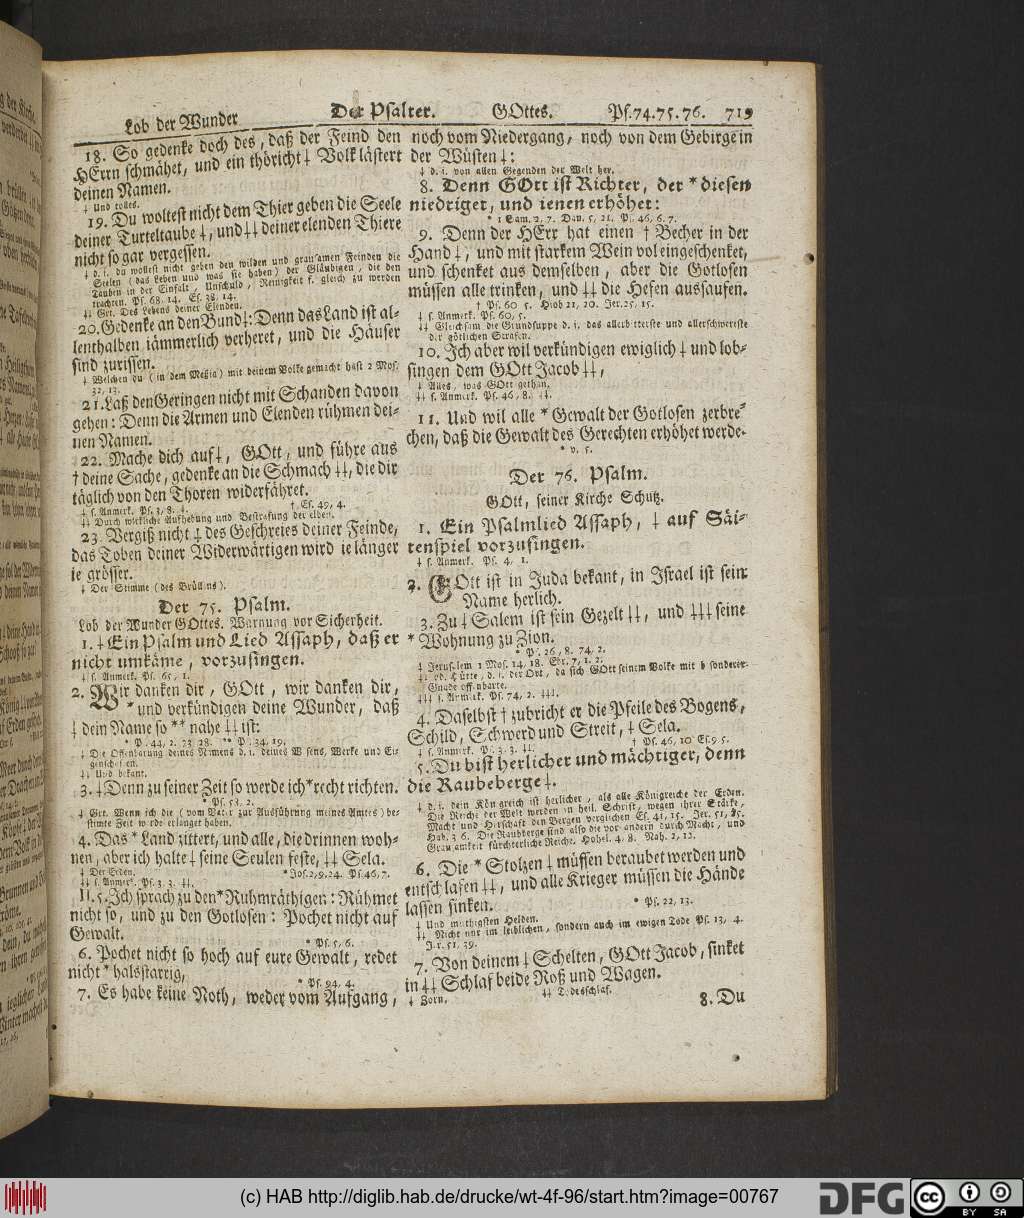 Lob der Wunder Der Psalter. GOttes. Ps.74.75.76. 719
18. So gedenke doch des, daß der Feind den
HErrn schmähet, und ein thöricht ⸸ Volk lästert
deinen Namen.
⸸ Und tolles.
19. Du woltest nicht dem Thier geben die Seele
deiner Turteltaube ⸸, und ⸸⸸ deiner elenden Thiere
nicht so gar vergessen.
⸸ d. i. du wollest nicht geben den wilden und grausamen Feinden die
Seelen (das Leben und was sie haben) der Gläubigen, die den
Tauben in der Einfalt, Unschuld, Reinigkeit f. gleich zu werden
trachten. Ps. 68, 14. Es. 38, 14.
⸸⸸ Grt. Des Lebens deiner Elenden.
20. Gedenke an den Bund ⸸: Denn das Land ist al-
lenthalben jämmerlich verheret, und die Häuser
sind zurissen.
⸸ Welchen du (in dem Meßia) mit deinem Volke gemacht hast 2 Mos.
32, 13.
21. Laß den Geringen nicht mit Schanden davon
gehen: Denn die Armen und Elenden rühmen dei-
nen Namen.
22. Mache dich auf ⸸, GOtt, und führe aus
† deine Sache, gedenke an die Schmach ⸸⸸, die dir
täglich von den Thoren widerfähret.
⸸ s. Anmerk. Ps. 3, 8. ⸸. † Es. 49, 4.
⸸⸸ Durch wirkliche Aufhebung und Bestrafung derselben.
23. Vergiß nicht ⸸ des Geschreies deiner Feinde,
das Toben deiner Widerwärtigen wird ie länger
ie grösser.
⸸ Der Stimme (des Brüllens).
Der 75. Psalm.
Lob der Wunder GOttes. Warnung vor Sicherheit.
1. ⸸ Ein Psalm und Lied Assaph, daß er
nicht umkäme, vorzusingen.
⸸ s. Anmerk. Ps. 65, 1.
2. Wir danken dir, GOtt, wir danken dir,
* und verkündigen deine Wunder, daß
⸸ dein Name so ** nahe ⸸⸸ ist:
* P. 44, 2. 23, 28. ** P. 34, 19.
⸸ Die Offenbarung deines Namens d. i. deines Wesens, Werke und Ei-
genschaften.
⸸⸸ Und bekant.
3. ⸸ Denn zu seiner Zeit so werde ich * recht richten.
* Ps. 53, 2.
⸸ Grt. Wenn ich die (vom Vater zur Ausführung meines Amtes) be-
stimte Zeit werde erlanget haben.
4. Das * Land zittert, und alle, die drinnen woh-
nen, aber ich halte ⸸ seine Seulen feste, ⸸⸸ Sela.
⸸ Der Erden. * Jos. 2, 9. 24. Ps. 46, 7.
⸸⸸ s. Anmerk. Ps. 3, 3. ⸸⸸.
II. 5. Ich sprach zu den * Ruhmräthigen: Rühmet
nicht so, und zu den Gotlosen: Pochet nicht auf
Gewalt.
* Ps. 5, 6.
6. Pochet nicht so hoch auf eure Gewalt, redet
nicht * halsstarrig,
* Ps. 94, 4.
7. Es habe keine Noth, weder vom Aufgang,
noch vom Niedergang, noch von dem Gebirge in
der Wüsten ⸸:
⸸ d. i. von allen Gegenden der Welt her.
8. Denn GOtt ist Richter, der * diesen
niedriget, und ienen erhöhet:
* 1 Sam. 2, 7. Dan. 5, 21. Ps. 46, 6. 7.
9. Denn der HErr hat einen † Becher in der
Hand ⸸, und mit starkem Wein vol eingeschenket,
und schenket aus demselben, aber die Gotlosen
müssen alle trinken, und ⸸⸸ die Hefen aussaufen.
† Ps. 60, 5. Hiob 21, 20. Jer. 25, 15.
⸸ s. Anmerk. Ps. 60, 5.
⸸⸸ Gleichsam die Grundsuppe d. i. das allerbitterste und allerschwereste
der götlichen Strafen.
10. Ich aber wil verkündigen ewiglich ⸸ und lob-
singen dem GOtt Jacob ⸸⸸,
⸸ Alles, was GOtt gethan.
⸸⸸ s. Anmerk. Ps. 46, 8. ⸸⸸.
11. Und wil alle * Gewalt der Gotlosen zerbre-
chen, daß die Gewalt des Gerechten erhöhet werde.
* v. 5.
Der 76. Psalm.
GOtt, seiner Kirche Schutz.
1. Ein Psalmlied Assaph, ⸸ auf Säi-
tenspiel vorzusingen.
⸸ s. Anmerk. Ps. 4, 1.
2. GOtt ist in Juda bekant, in Israel ist sein
Name herlich.
3. Zu ⸸ Salem ist sein Gezelt ⸸⸸, und ⸸⸸⸸ seine
* Wohnung zu Zion.
* Ps. 26, 8. 74, 2.
⸸ Jerusalem 1 Mos. 14, 18. Ebr. 7, 1. 2.
⸸⸸ od. Hütte, d. i. der Ort, da sich GOtt seinem Volke mit besonderer
Gnade offenbarte.
⸸⸸⸸ s. Anmerk. Ps. 74, 2. ⸸⸸⸸.
4. Daselbst † zubricht er die Pfeile des Bogens,
Schild, Schwerd und Streit, ⸸ Sela.
⸸ s. Anmerk. Ps. 3, 3. ⸸⸸. † Ps. 46, 10. Es. 9, 5.
5. Du bist herlicher und mächtiger, denn
die Raubeberge ⸸.
⸸ d. i. dein Königreich ist herlicher, als alle Königreiche der Erden.
Die Reiche der Welt werden in heil. Schrift, wegen ihrer Stärke,
Macht und Herschaft den Bergen verglichen Es. 41, 15. Jer. 51, 25.
Hab. 3, 6. Die Raubberge sind also die vor andern durch Macht, und
Grausamkeit fürchterliche Reiche. Hohel. 4, 8. Nah. 2, 12.
6. Die * Stolzen ⸸ müssen beraubet werden und
entschlafen ⸸⸸, und alle Krieger müssen die Hände
lassen sinken.
* Ps. 22, 13.
⸸ Und muthigsten Helden.
⸸⸸ Nicht nur im leiblichen, sondern auch im ewigen Tode Ps. 13, 4.
Jer. 51, 39.
7. Von deinem ⸸ Schelten, GOtt Jacob, sinket
in ⸸⸸ Schlaf beide Roß und Wagen.
⸸ Zorn. ⸸⸸ Todesschlaf.
8. Du
(c) HAB http://diglib.hab.de/drucke/wt-4f-96/start.htm?image=00767
DFG
cc BY SA